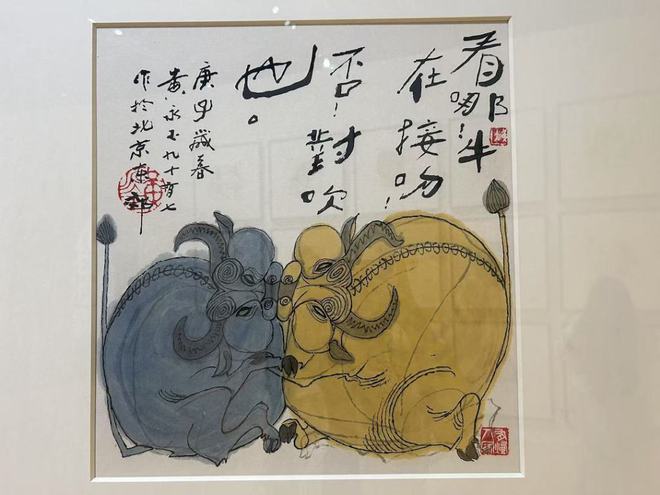 看哪！牛
在接吻！
否！對吹
也。
庚子歲春
黃永玉九十有七
作於北京東郊